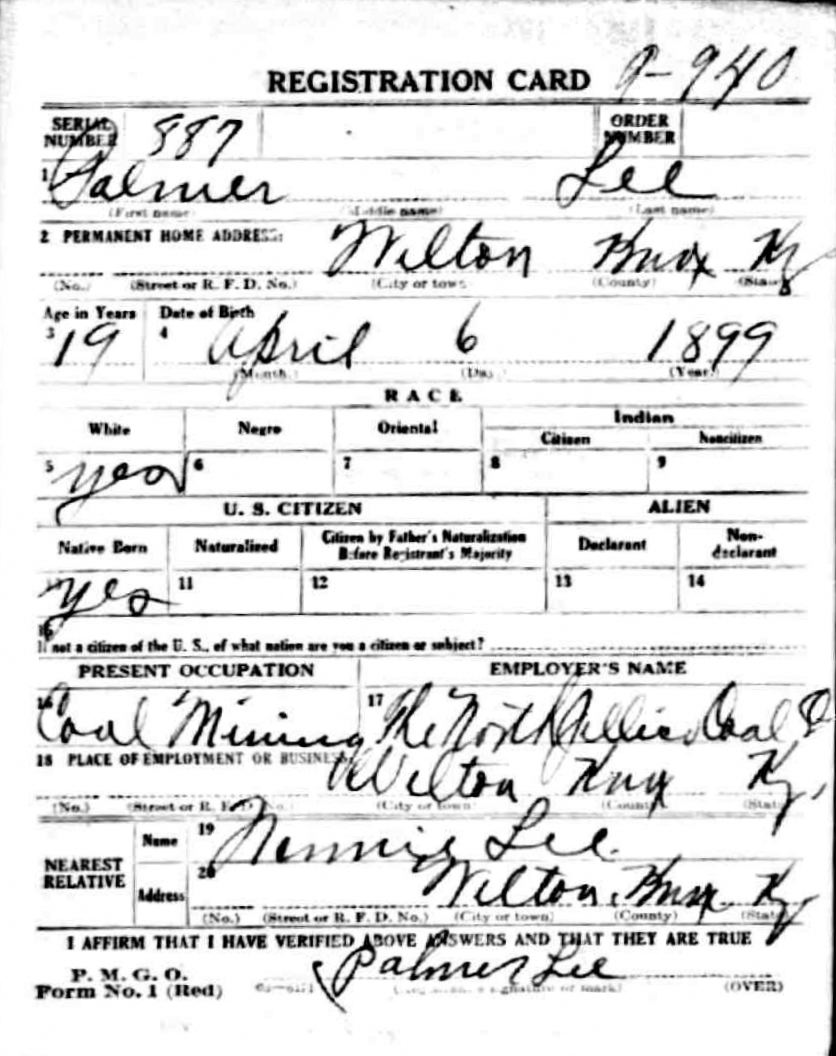 REGISTRATION CARD 9-940
SERIAL NUMBER 887 ORDER NUMBER
1 Palmer Lee
(First name) (Middle name) (Last name)
2 PERMANENT HOME ADDRESS: Wilton Knox Ky
(No.) (Street or R. F. D. No.) (City or town) (County) (State)
Age in Years Date of Birth
3 19 4 April 6 1899
(Month.) (Day.) (Year.)
RACE
White Negro Oriental Indian
Citizen Noncitizen
5 yes 6 7 8 9
U. S. CITIZEN ALIEN
Native Born Naturalized Citizen by Father's Naturalization Before Registrant's Majority Declarant Non-declarant
yes 11 12 13 14
15
If not a citizen of the U. S., of what nation are you a citizen or subject?
PRESENT OCCUPATION EMPLOYER'S NAME
16 Coal Mining 17 The North Jellico Coal
18 PLACE OF EMPLOYMENT OR BUSINESS: Wilton Knox Ky.
(No.) (Street or R. F. D. No.) (City or town) (County) (State)
NEAREST RELATIVE Name 19 Nannie Lee
Address 20 Wilton, Knox Ky
(No.) (Street or R. F. D. No.) (City or town) (County) (State)
I AFFIRM THAT I HAVE VERIFIED ABOVE ANSWERS AND THAT THEY ARE TRUE
P. M. G. O.
Form No. 1 (Red) Palmer Lee
(Registrant's signature or mark) (OVER)